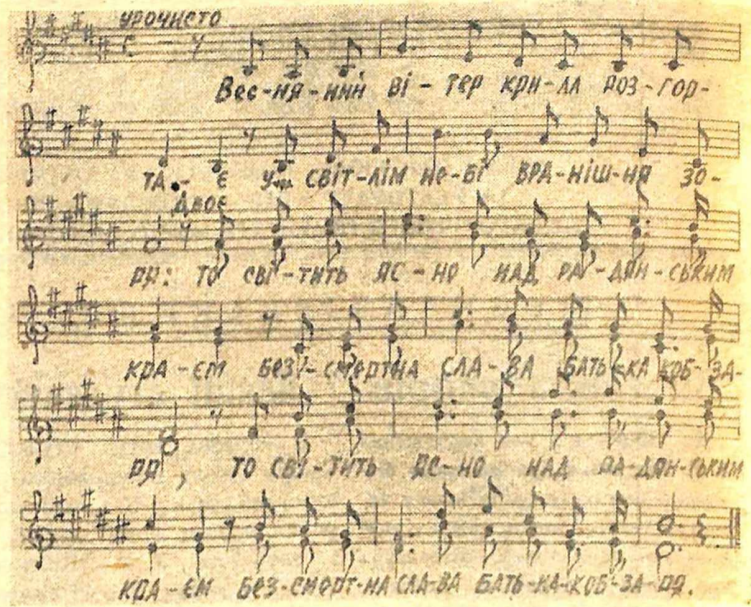 урочисто
Вес-ня-ний ві-тер кри-ла роз-гор-
та-є у світ-лім не-бі вра-ніш-ня зо-
Двоє
ря: то сві-тить яс-но над ра-дян-ським
кра-єм без-смертна сла-ва бать-ка коб-за-
ря, то сві-тить яс-но над ра-дян-ським
кра-єм без-смерт-на сла-ва бать-ка-коб-за-ря.